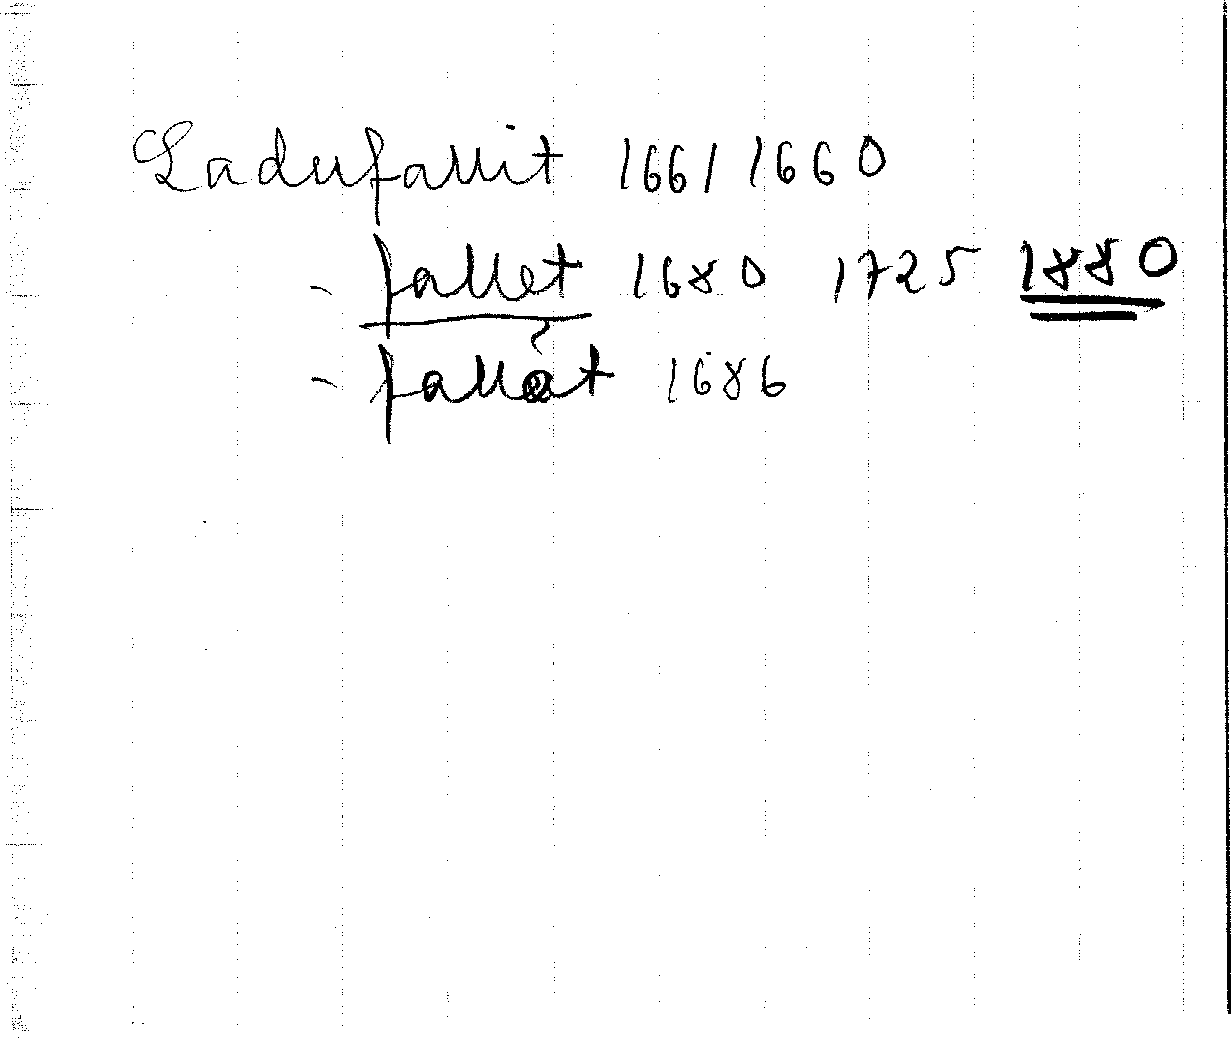 Ladufallit 1661 1660
- fallet 1680 1725 1880
- 1686